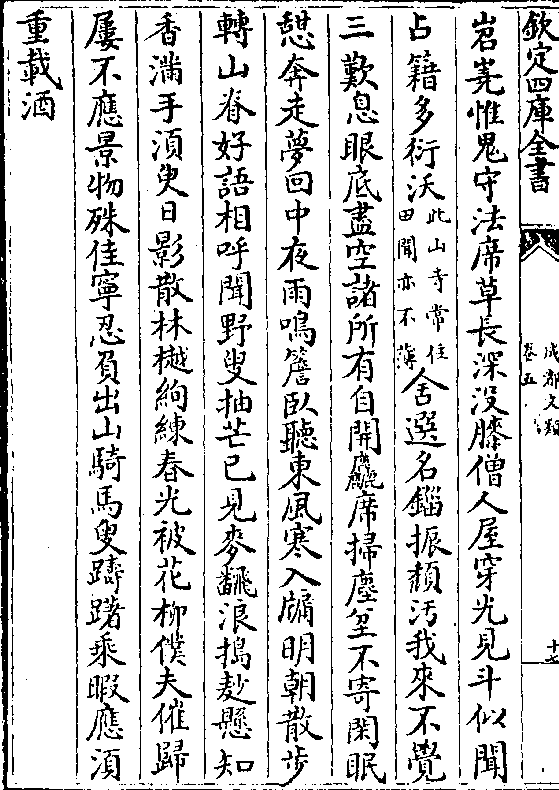 欽定四庫全書
成都文類
卷五
十七
岧嶤惟鬼守法席草長深没膝僧人屋穿光見斗似聞
占籍多衍沃此山寺常住田聞亦不薄舍選名緇振頽汚我來不覺
三歎息眼底盡空諸所有自開麤席掃塵坌不寄閑眠
憇奔走夢回中夜雨鳴簷臥聽東風寒入牖明朝散步
轉山脊好語相呼聞野叟抽芒已見麥飜浪搗麨懸知
香滿手湏臾日影散林樾絢練春光被花柳僕夫催歸
屢不應景物殊佳寧忍負出山騎馬叟躊躇乘暇應湏
重載酒